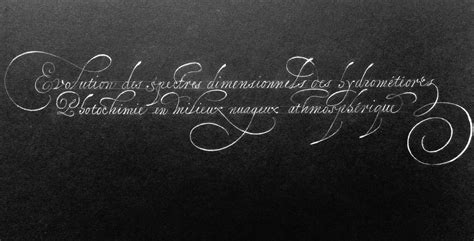 Evolution des spectres dimensionnels des hydrométéores
Photochimie en milieux nuageux athmosphérique